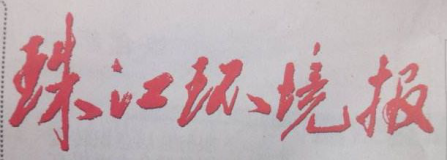 珠江环境报